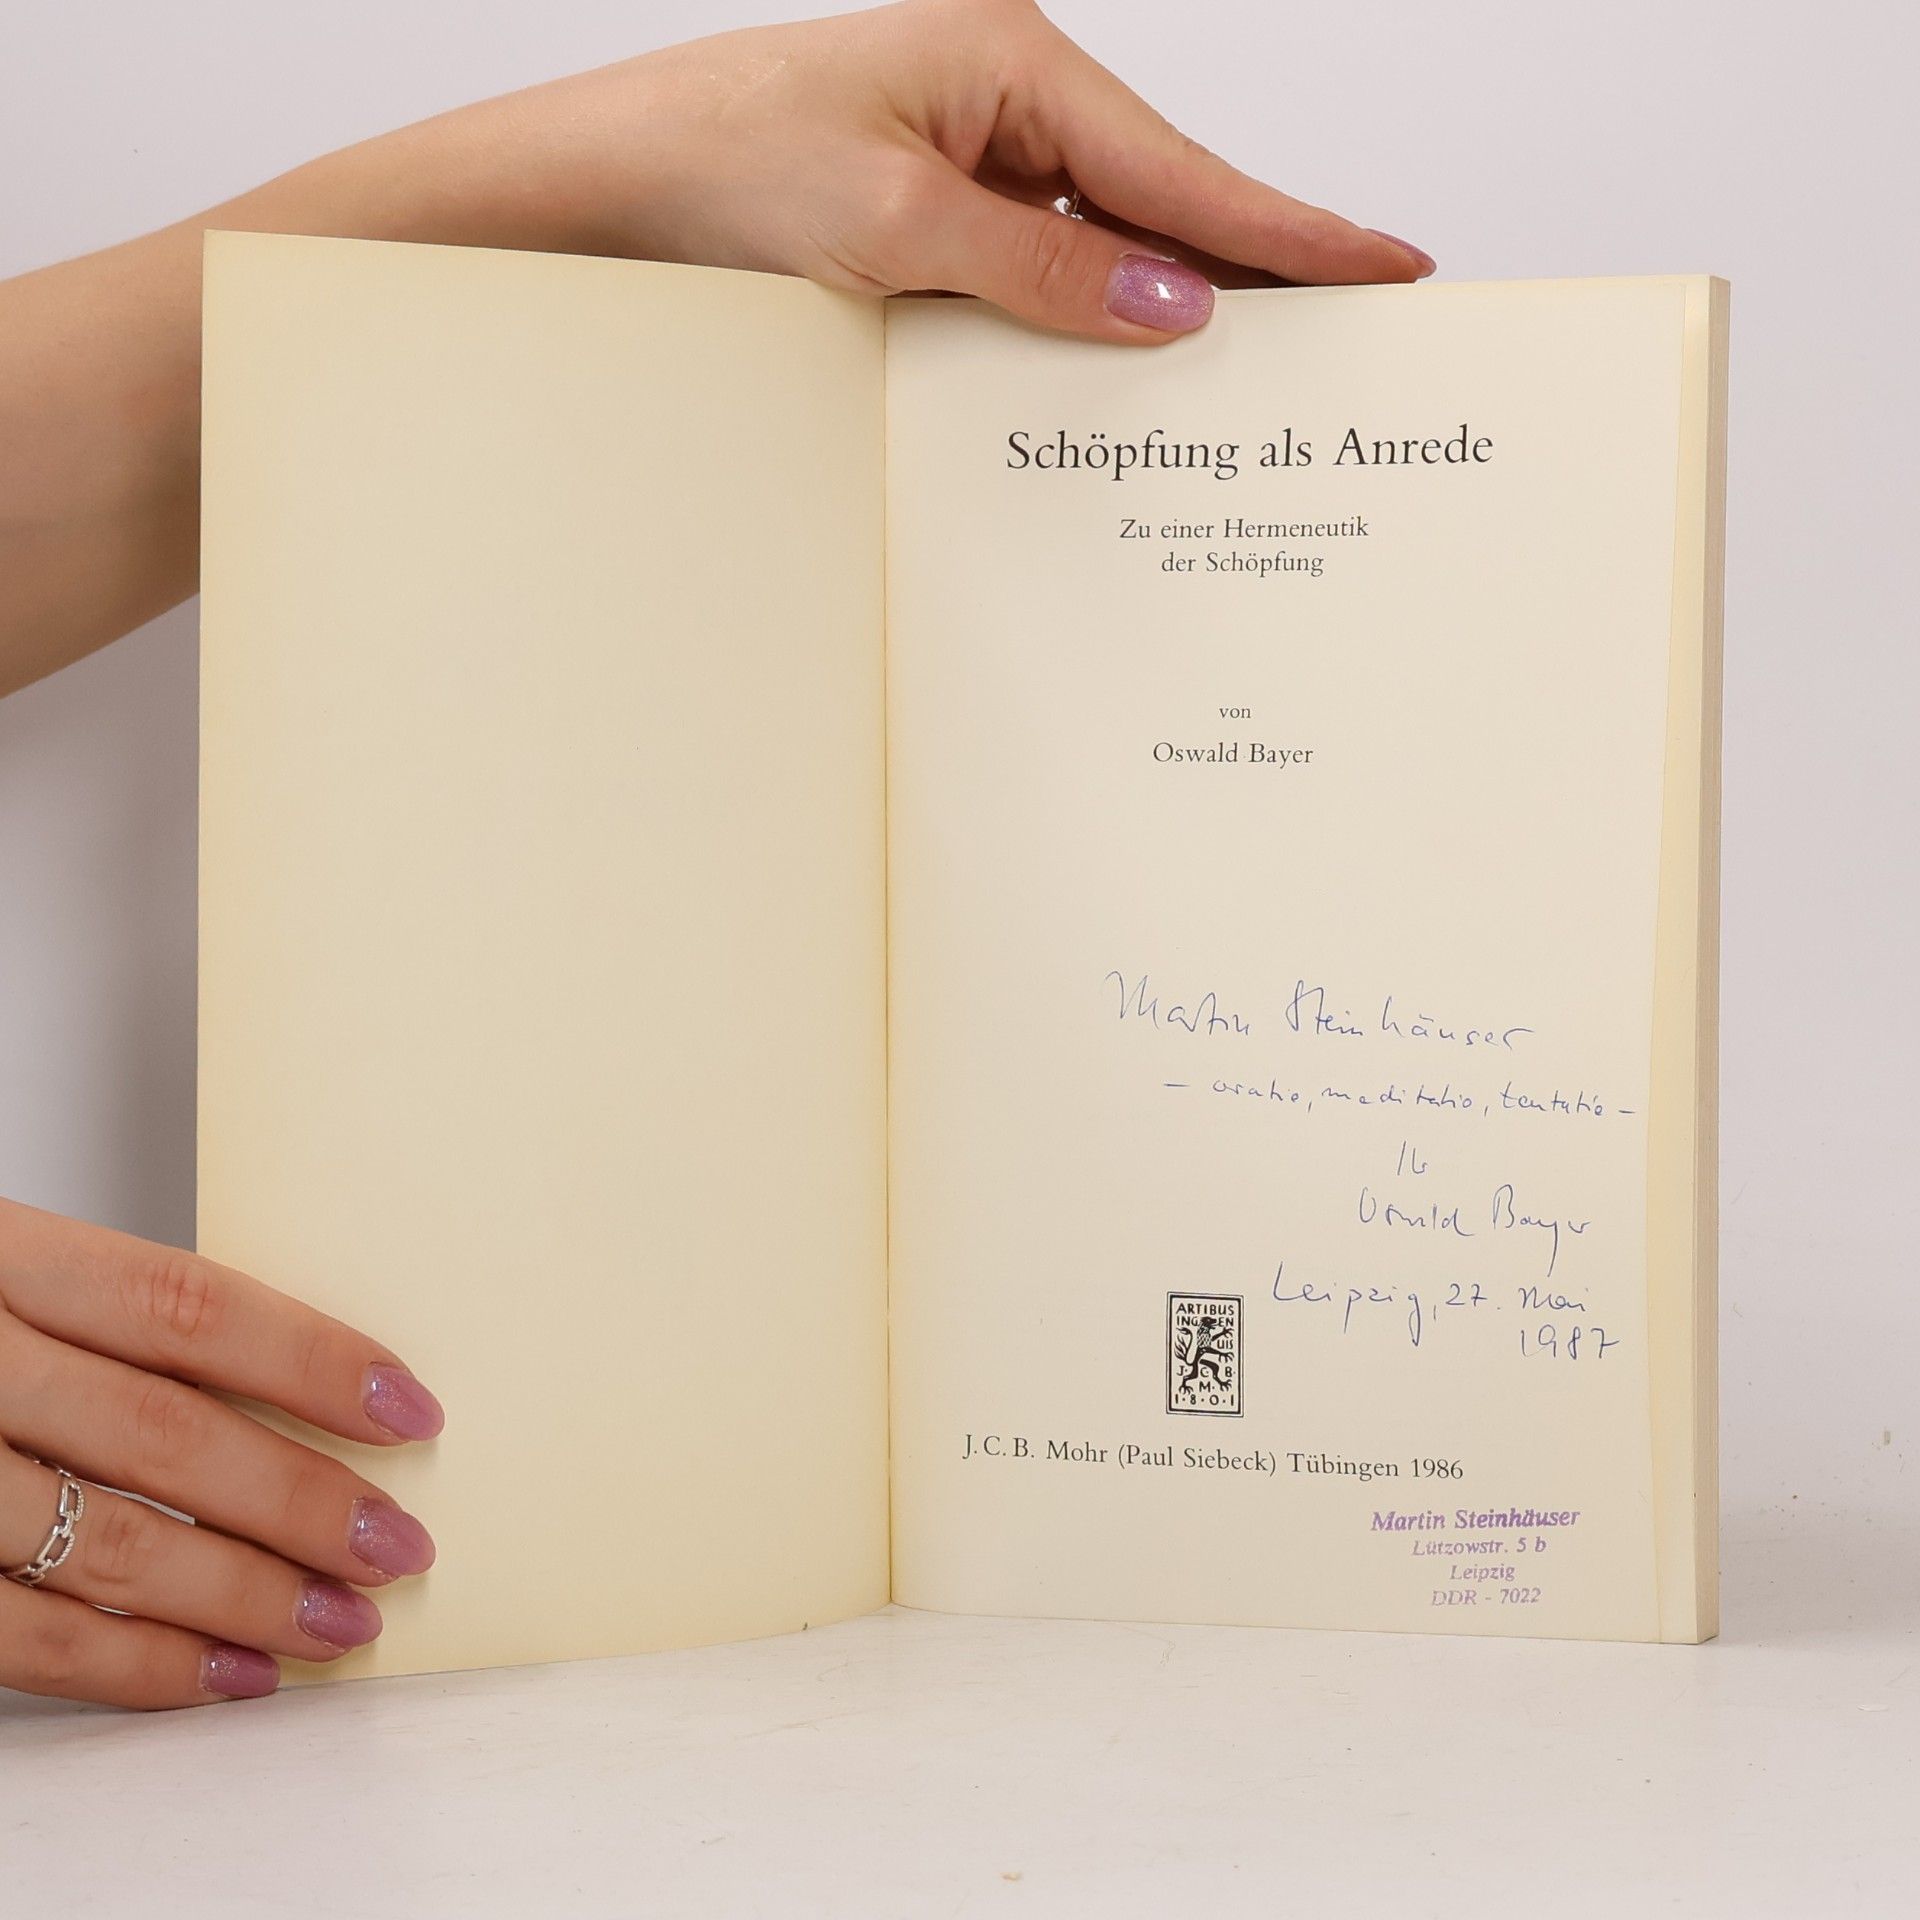 Schöpfung als Anrede
Zu einer Hermeneutik
der Schöpfung
von
Oswald Bayer
Martin Steinhäuser
– oratio, meditatio, tentatio –
Ihr
Oswald Bayer
Leipzig, 27. Mai
1987
ARTIBUS
INGENUIS
J·C·B·
M·
1·8·0·1
J.C.B. Mohr (Paul Siebeck) Tübingen 1986
Martin Steinhäuser
Lützowstr. 5 b
Leipzig
DDR - 7022